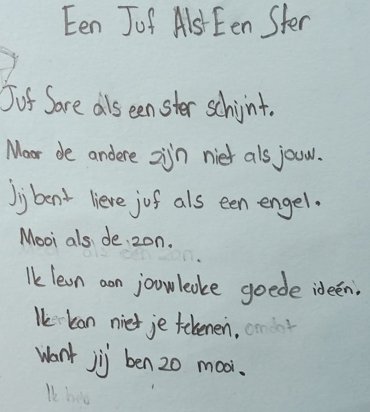 Een Juf Als Een Ster
Juf Sare als een ster schijnt.
Maar de andere zijn niet als jouw.
Jij bent lieve juf als een engel.
Mooi als de zon.
Ik leun aan jouw leuke goede ideén.
Ik kan niet je tekenen, omdat
Want jij ben zo mooi.
Ik heb